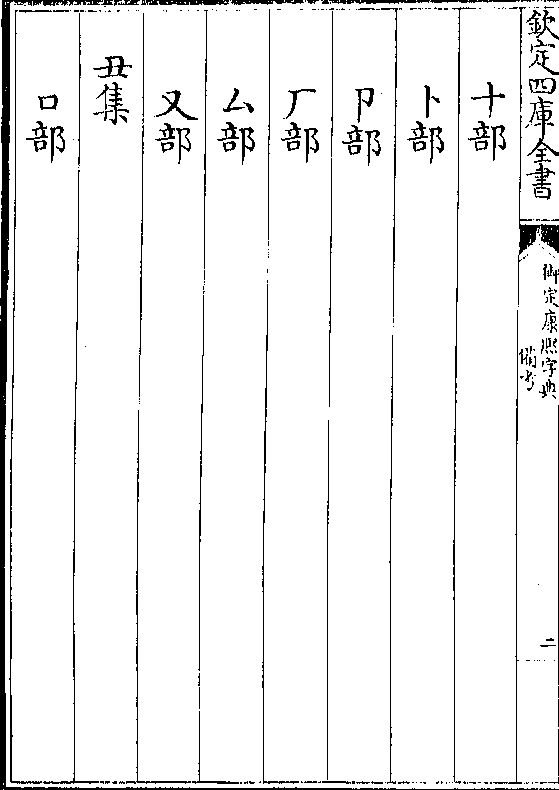 欽定四庫全書
御定康熙字典
備考
二
十部
卜部
卩部
厂部
厶部
又部
丑集
口部